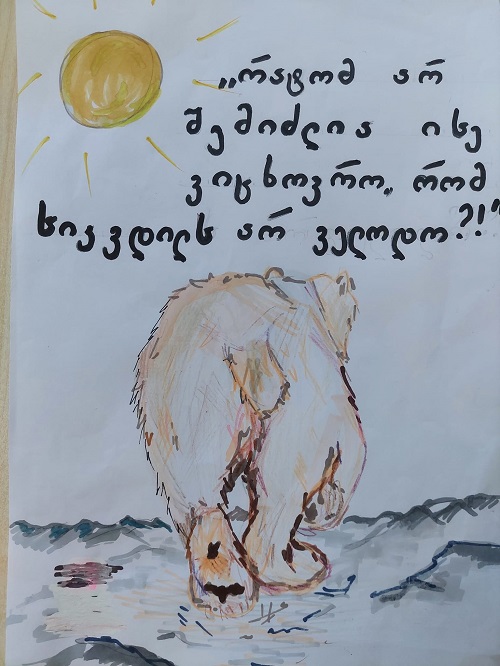 „რატომ არ
შემიძლია ისე
ვიცხოვრო, რომ
სიკვდილს არ ველოდო?!"